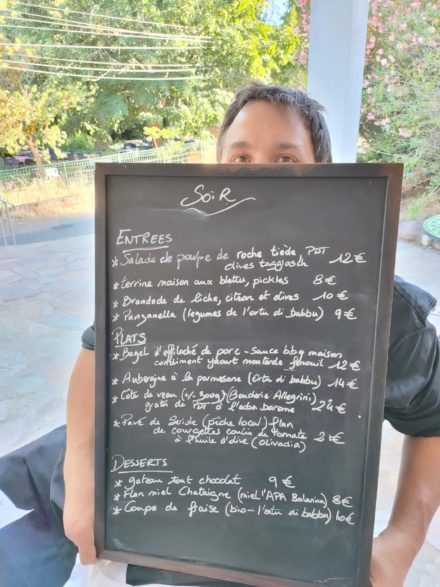 SoiR
ENTREES
* Salade de poulpe de roche tiède PDT 12€
olives taggiash
* terrine maison aux blettes, pickles 8€
* Brandade de liche, citron et olives 10€
* Panzanella (legumes de l'ortu di babbu) 9€
PLATS
* Bagel d'effiloché de porc - sauce bbq maison
condiment yahourt moutarde fenouil 12€
* Aubergine à la parmesane (Ortu di babbu) 14€
* Côte de veau (+/- 300g) (Boucherie Allegrini)
gratin de PDT à l'arba barona 24€
* Pavé de Seriole (pêche local) flan
de courgettes coulis de tomate
à l'huile d'olive (Olivadia)
DESSERTS
* gateau tout chocolat 9€
* Flan miel Chataigne (miel l'APA Balanina) 8€
* Coupe de fraise (bio - l'ortu di babbu) 10€